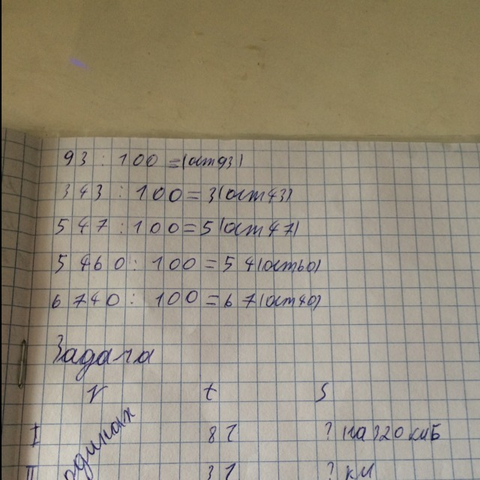 93 : 100 = (ост 93)
343 : 100 = 3 (ост 43)
547 : 100 = 5 (ост 47)
5 460 : 100 = 54 (ост 60)
6 740 : 100 = 67 (ост 40)
Задача
V t S
I 8 ч ? на 320 км Б
II 3 ч ? км
одинак